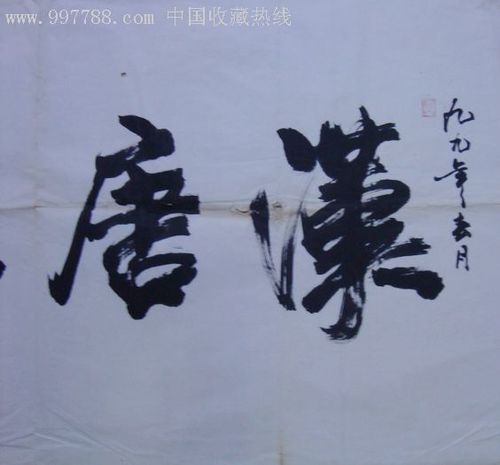 www.997788.com 中国收藏热线
九九年月
漢唐